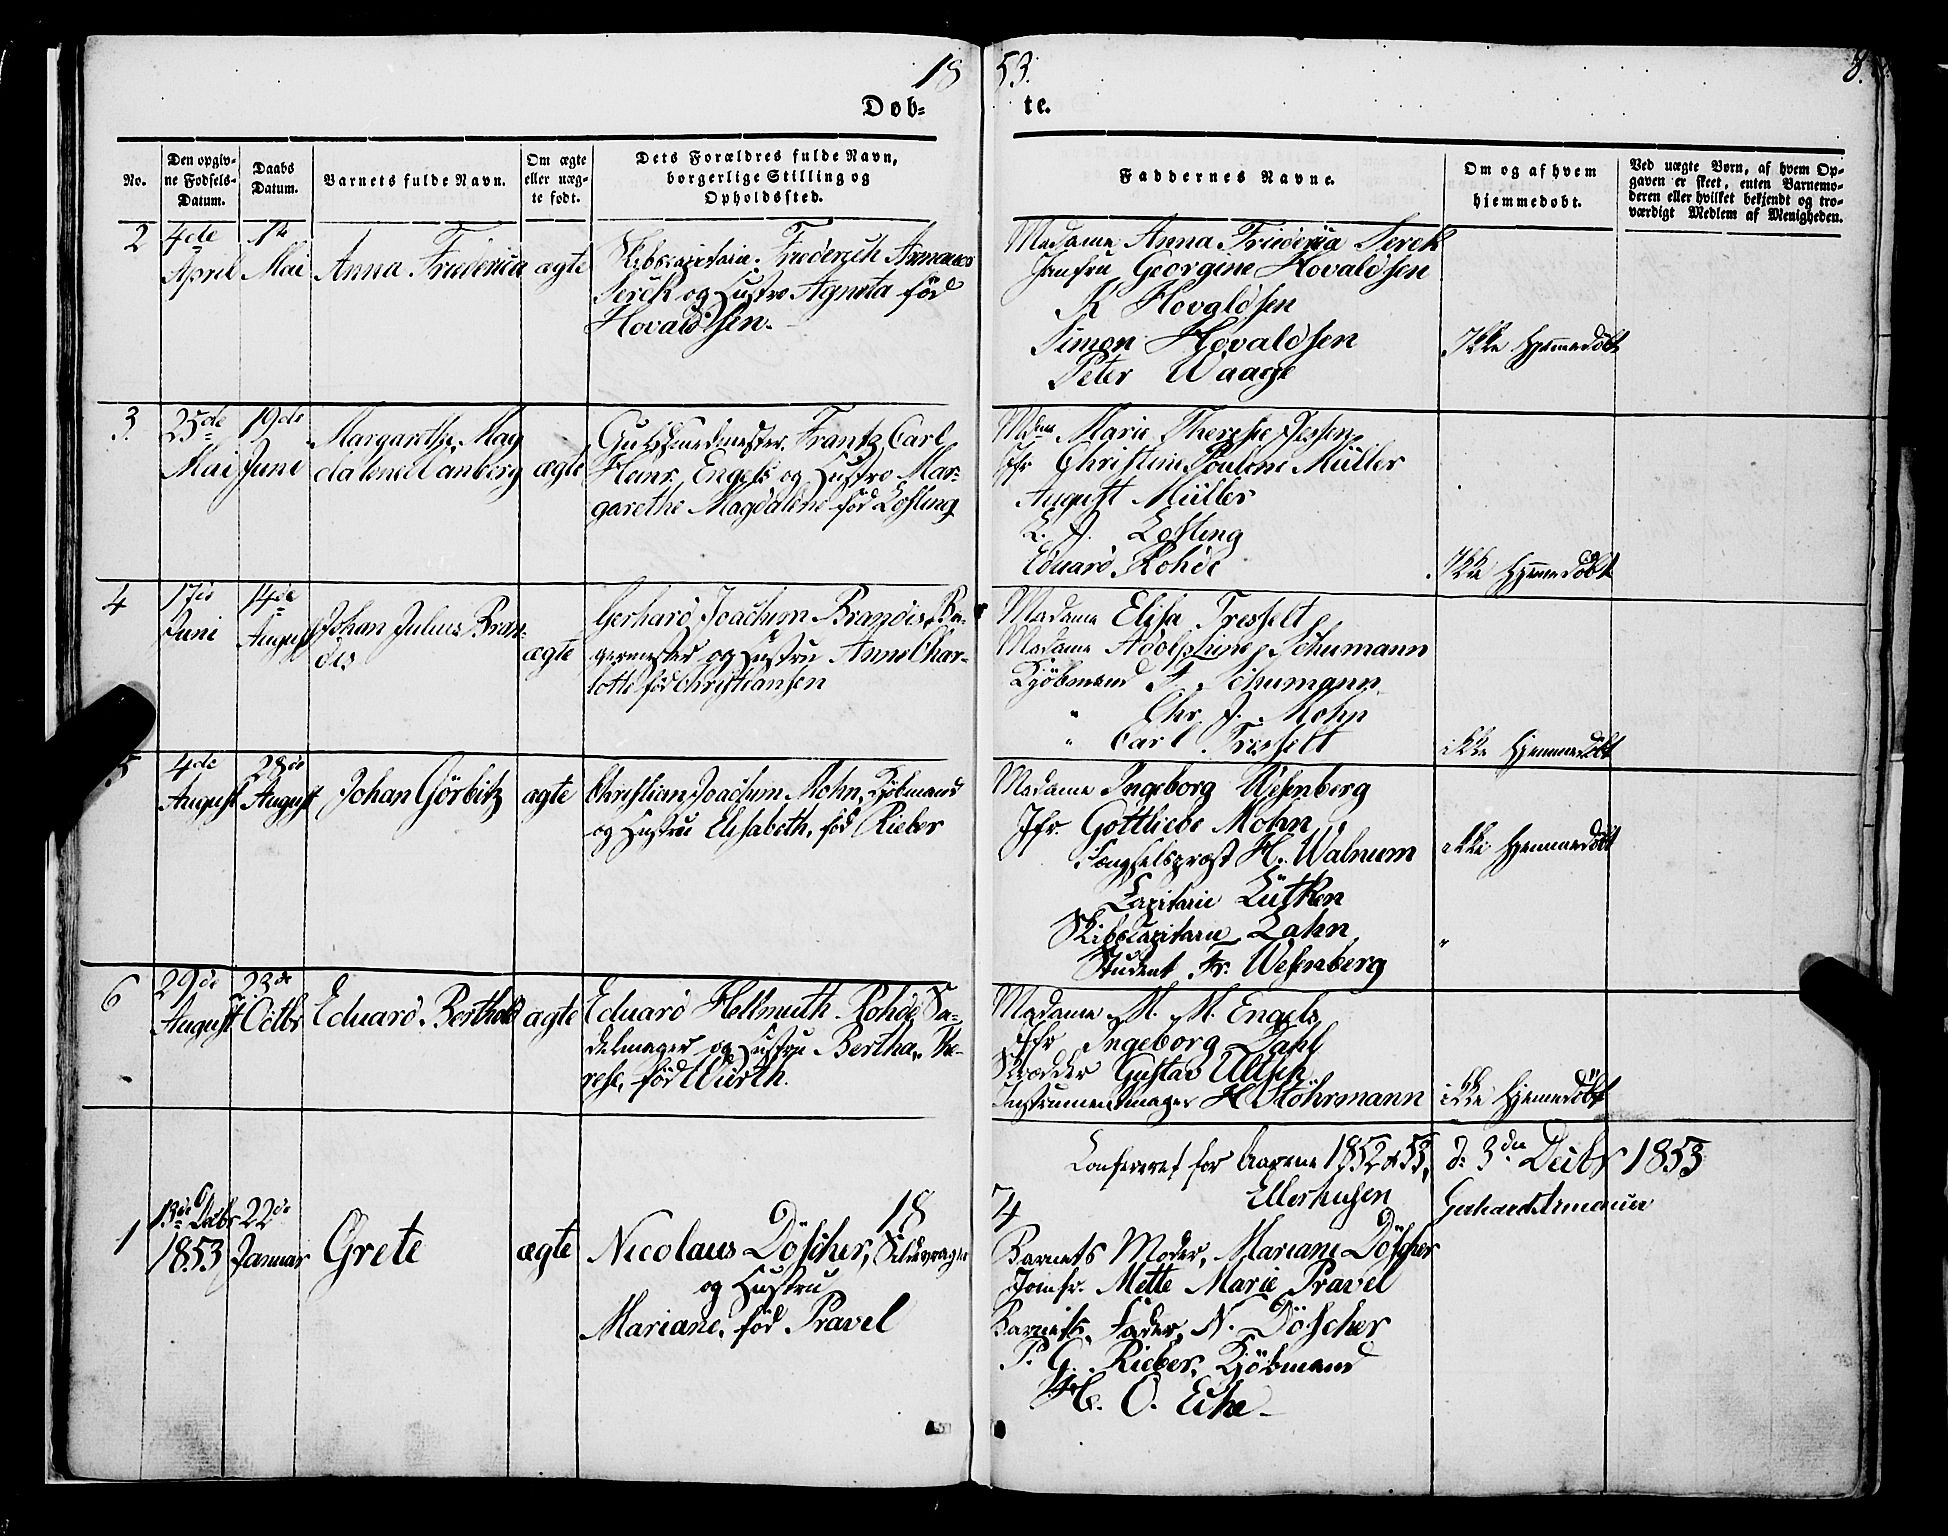 18 53. 8.
Døb- te.
No.
Den opgiv-
ne Fødsels-
Datum.
Daabs
Datum.
Barnets fulde Navn.
Om ægte
eller uæg-
te født.
Dets Forældres fulde Navn,
borgerlige Stilling og
Opholdssted.
Faddernes Navne.
Om og af hvem
hjemmedøbt.
Ved uægte Børn, af hvem Op-
gaven er skeet, enten Barnemo-
deren eller hvilket bekjendt og tro-
værdigt Medlem af Menigheden.
2
4de
April
1te
Mai
Anna Friederica
ægte
Skibscapitain Friederich
Serck og Hustro Agneta föd
Hovaldsen.
Madame Anna Friederica Serck
Jomfru Georgine Hovaldsen
K Hovaldsen
Simon Hovaldsen
Peter Waage
Ikke hjemmedöbt
3.
25de
Mai
19de
Juni
Margarethe Mag
dalene
ægte
Guldsmedmester Frantz Carl
Hans Engels og Hustro Mar-
garethe Magdalene föd Losting
Madme Marie Therese Jessen
Jfr Christine Poulene Müller
August Müller
L. J. Losting
Eduard Rohde
Ikke hjemmedöbt
4
17de
Juni
14de
August
Johan Julius Bran-
dis
ægte
Gerhard Joachum Brandis, Ba-
germester og Hustru Anne Char-
lotte föd Christiansen
Madame Elisa Tresselt
Madame Adolphine Schumann
Kjöbmand F. Schumann
" Chr. J. Mohn
" Carl Tresselt
ikke hjemmedöbt
5
4de
August
28de
August
Johan Görbitz
ægte
Christian Joachum Mohn, Kjöbmand
og Hustru Elisabeth, föd Rieber
Madame Ingeborg Wesenberg
Jfr. Gottliebe Mohn
Fængselspræst H. Walnum
Capitain Lütken
Skibscapitain Zahn
Student Fr. Wesenberg
ikke hjemmedöbt
"
6
29de
August
23de
Octbr
Eduard Berthold
ægte
Eduard Hellmuth Rohde, Sa-
delmager og Hustru Bertha, The-
rese, föd Würth.
Madame M. M. Engels
Jfr Ingeborg Dahl
Skrædder Gustav
Instrumentmager H Stöhrmann
ikke hjemmedöbt
Confereret for Aarene 1852 & 53, d: 3die Decbr 1853
Ellerhusen Gerhard Armauer
18 54
1
13de Decbr
1853
22de
Januar
Grete
ægte
Nicolaus Döscher,
og Hustru
Mariane, föd Pravel
Barnets Moder, Mariane Döscher
Jomfr. Mette Marie Pravel
Barnets Fader, N. Döscher
P. G. Rieber, Kjöbmand
H. O. Eike